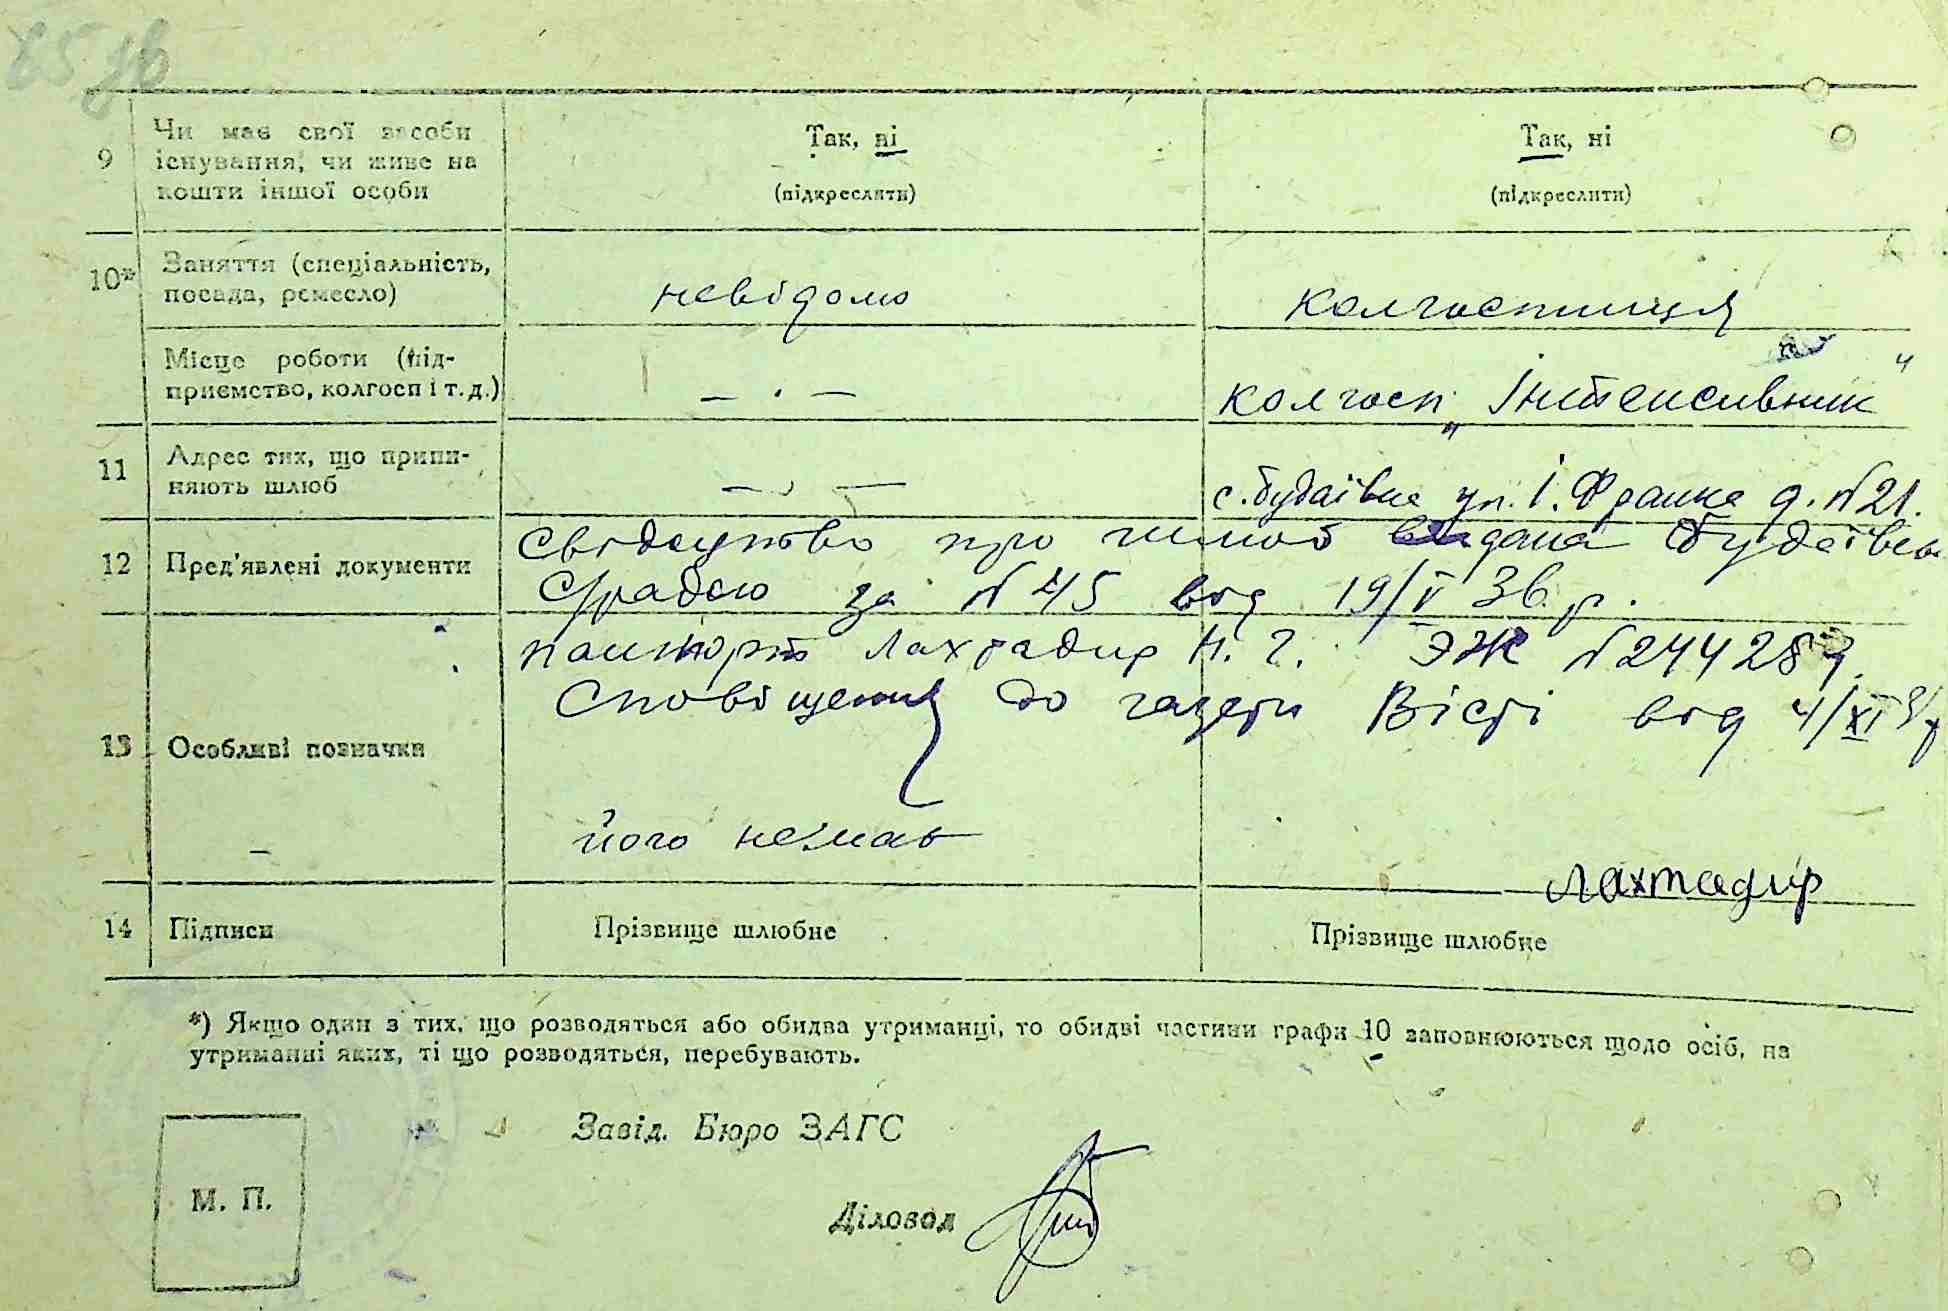 9 Чи має свої засоби існування, чи живе на кошти іншої особи
Так, ні
(підкреслити)
Так, ні
(підкреслити)
10* Заняття (спеціальність, посада, ремесло)
невідомо
колгоспниця
Місце роботи (підприємство, колгосп і т. д.)
— . —
колгосп „Інтенсивник"
11 Адрес тих, що припиняють шлюб
— . —
с. Будаївка ул. І. Франка д. №21.
12 Пред'явлені документи
Свідоцтво про шлюб видана Будаївсь
С/радою за №45 від 19/V 36 р.
паспорт Лахтадир Н. Г. ЭЖ
13 Особливі позначки
Сповіщення до газети Вісті від 4/XI
його немає
Лахтадир
14 Підписи
Прізвище шлюбне
Прізвище шлюбне
*) Якщо один з тих, що розводяться або обидва утриманці, то обидві частини графи 10 заповнюються щодо осіб, на
утриманні яких, ті що розводяться, перебувають.
Завід. Бюро ЗАГС
М. П.
Діловод